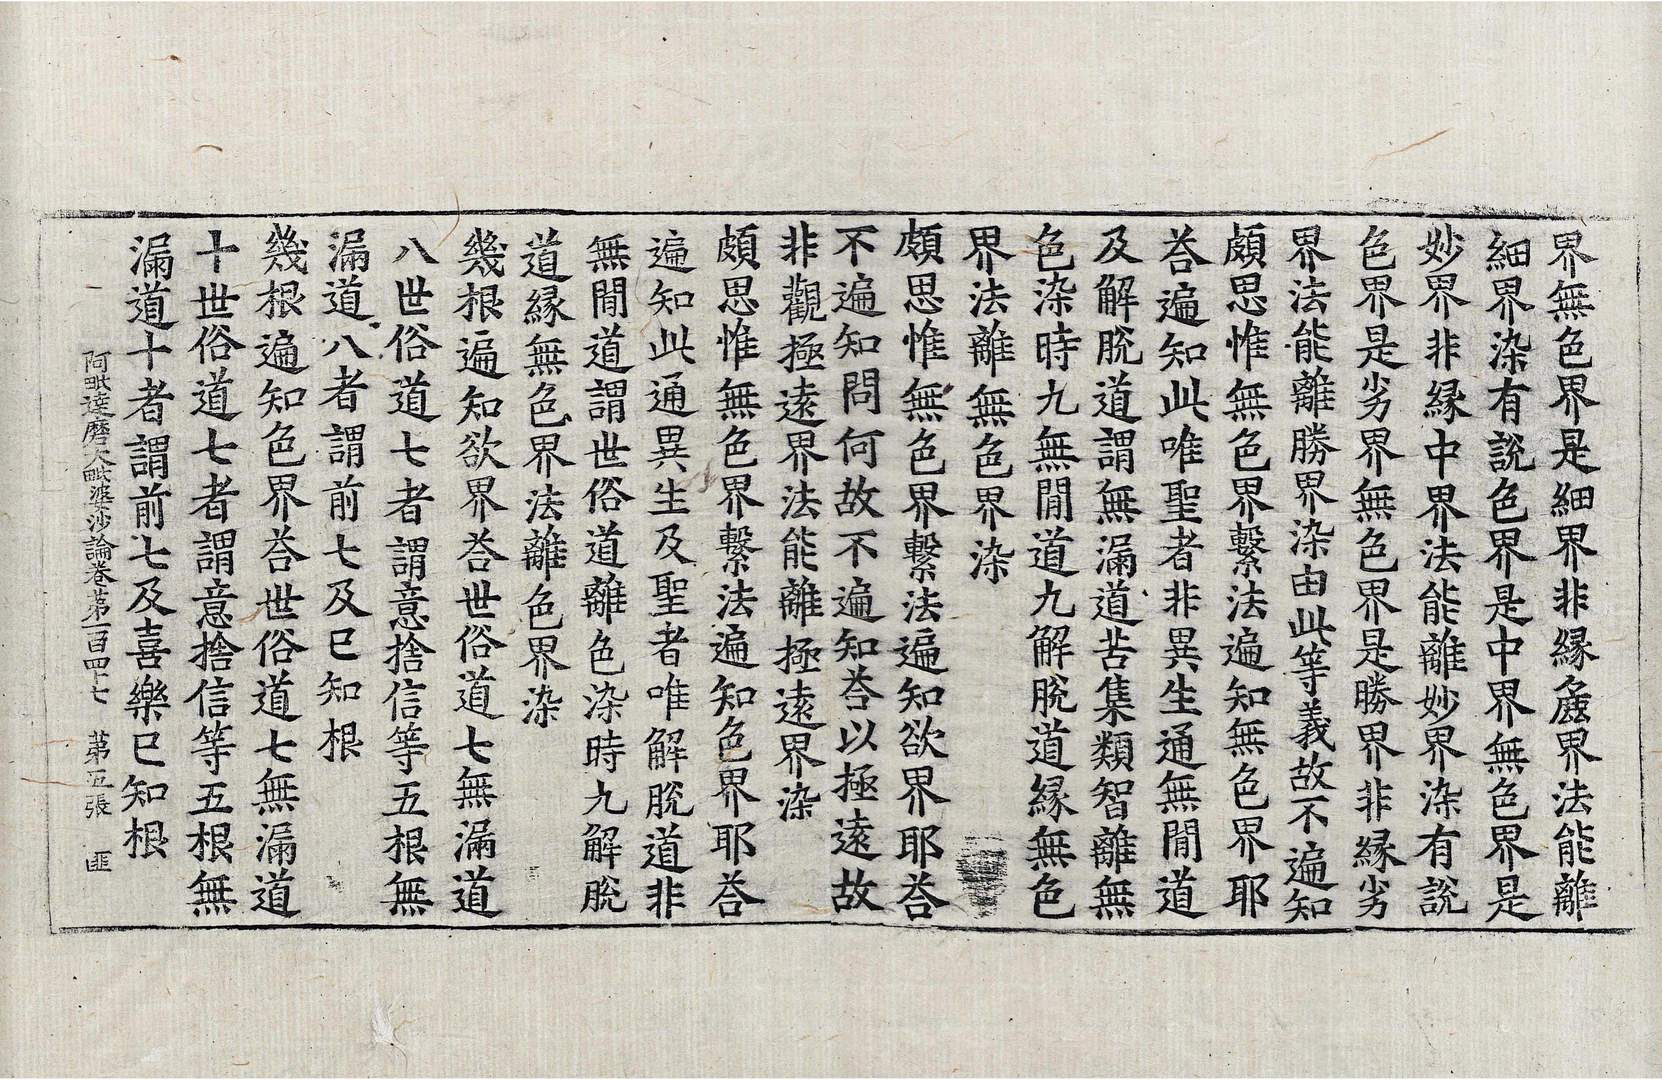 界無色界是細界非縁麁界法能離
細界染有說色界是中界無色界是
妙界非縁中界法能離妙界染有說
色界是劣界無色界是勝界非縁劣
界法能離勝界染由此等義故不遍知
頗思惟無色界繫法遍知無色界耶
荅遍知此唯聖者非異生通無閒道
及解脫道謂無漏道苦集類智離無
色染時九無閒道九解脫道縁無色
界法離無色界染
頗思惟無色界繫法遍知欲界耶荅
不遍知問何故不遍知荅以極遠故
非觀極遠界法能離極遠界染
頗思惟無色界繫法遍知色界耶荅
遍知此通異生及聖者唯解脫道非
無閒道謂世俗道離色染時九解脫
道縁無色界法離色界染
幾根遍知欲界荅世俗道七無漏道
八世俗道七者謂意捨信等五根無
漏道八者謂前七及已知根
幾根遍知色界荅世俗道七無漏道
十世俗道七者謂意捨信等五根無
漏道十者謂前七及喜樂已知根
阿毗達磨大毗婆沙論卷第一百四十七 第五張 匪